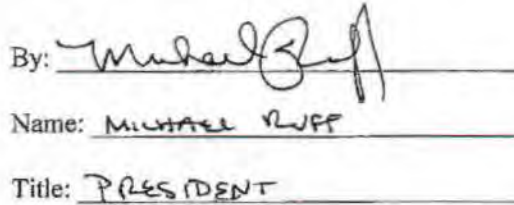 By: Michael Ruff
Name: MICHAEL RUFF
Title: PRESIDENT